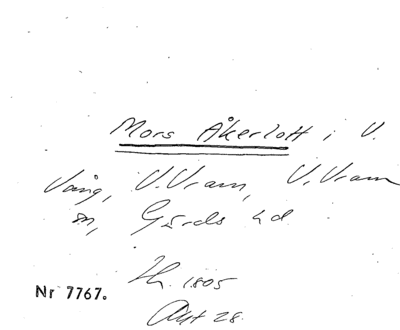 Mors Åkerlott i V.
Vång, V. Vram, V. Vram
sn, Gärds hd
Sk. 1805
Nr 7767.
Akt 28.